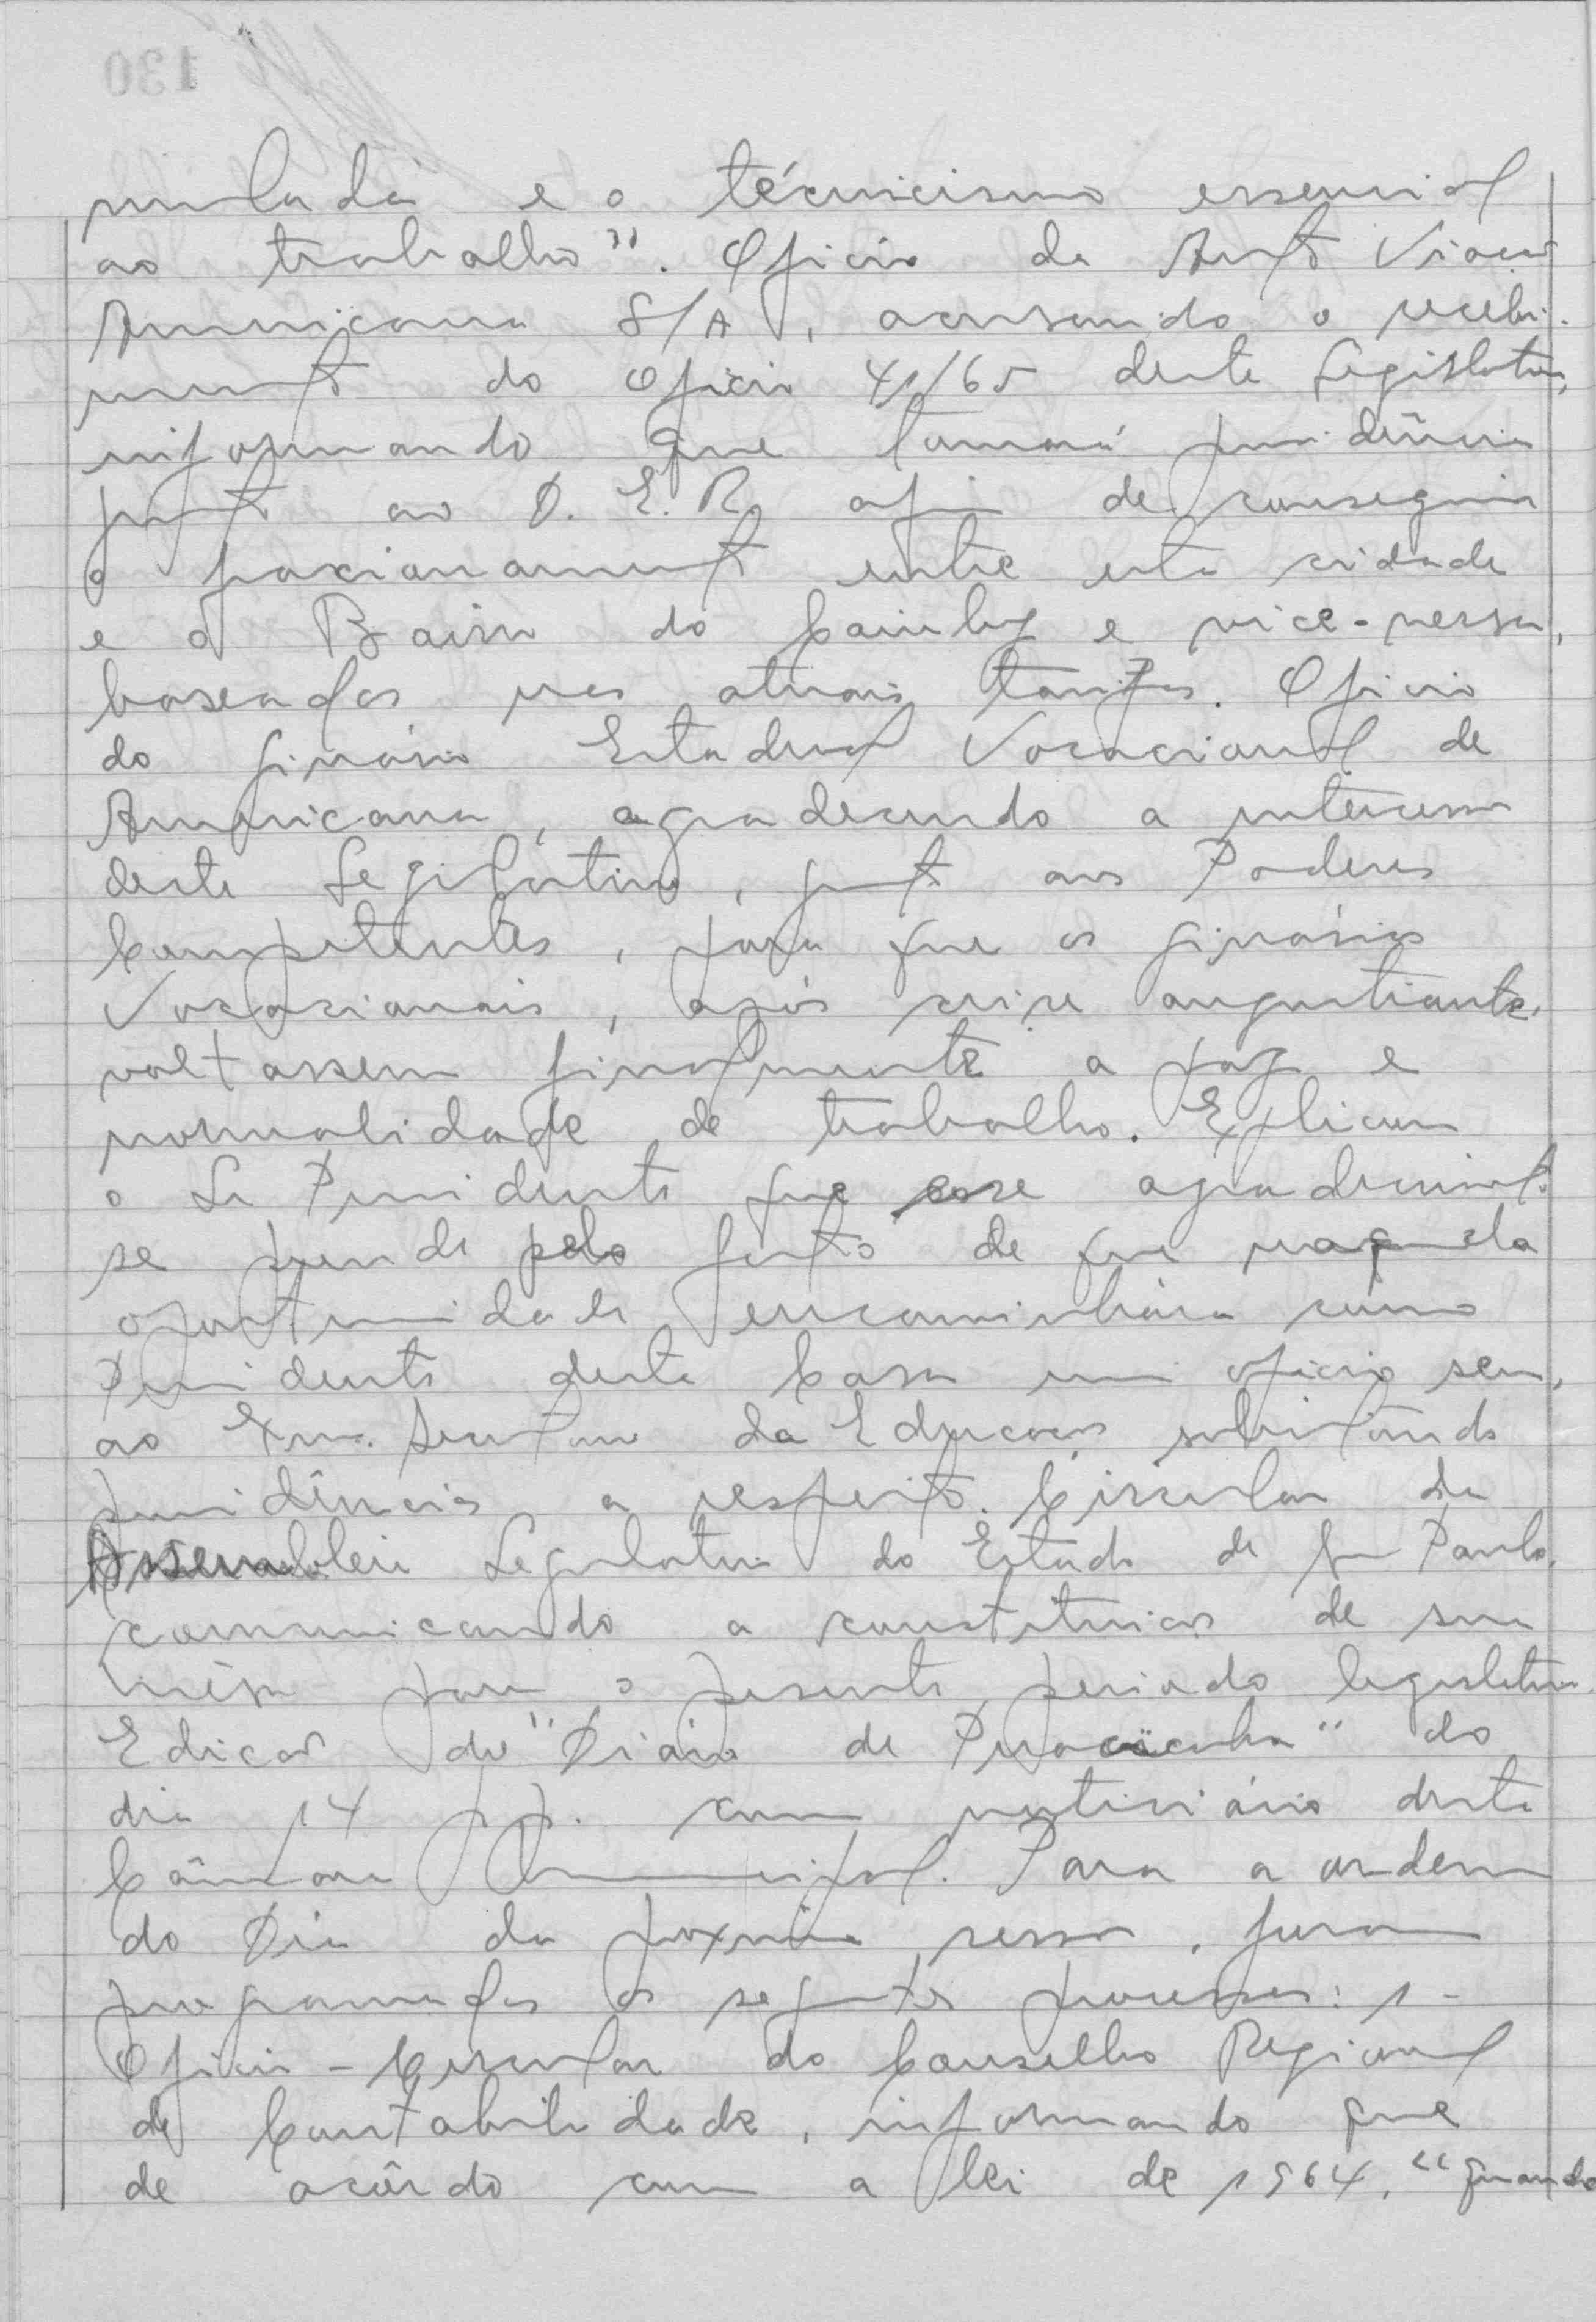 mulada e o técnicismo essencial
ao trabalho". Oficio da Auto Viação
Americana S/A, acusando o recebi-
mento do oficio 41/65 deste Legislativo,
informando que tomará providência
junto ao D.E.R. afim de conseguir
o fracionamento entre esta cidade
e o Bairro do Caiuby e vice-versa,
baseados nas atuais tarifas. Oficio
do Ginásio Estadual Vocacional de
Americana, agradecendo a interesse
deste Legislativo, junto aos Poderes
Competentes, para que os ginásios
Vocacionais, após crise angustiante,
voltassem finalmente a paz e
normalidade de trabalho. Explicou
o Sr Presidente que esse agradecimento
se prende pelo fato de que naquela
oportunidade encaminhára como
Presidente desta Casa um oficio seu,
ao Exmo. Secretario da Educação solicitando
providências a respeito. Circular da
Assembleia Legislativa do Estado de São Paulo,
comunicando a constituição de sua
Mêsa para o presente periodo legislativo.
Edição do "Diário de Piracicaba" do
dia 14 p.p. com noticiário desta
Câmara Municipal. Para a ordem
do Dia da proxima sessão, foram
programados os seguintes processos: 1-
Oficio-Circular do Conselho Regional
de Contabilidade, informando que
de acôrdo com a lei de 1964, "quando